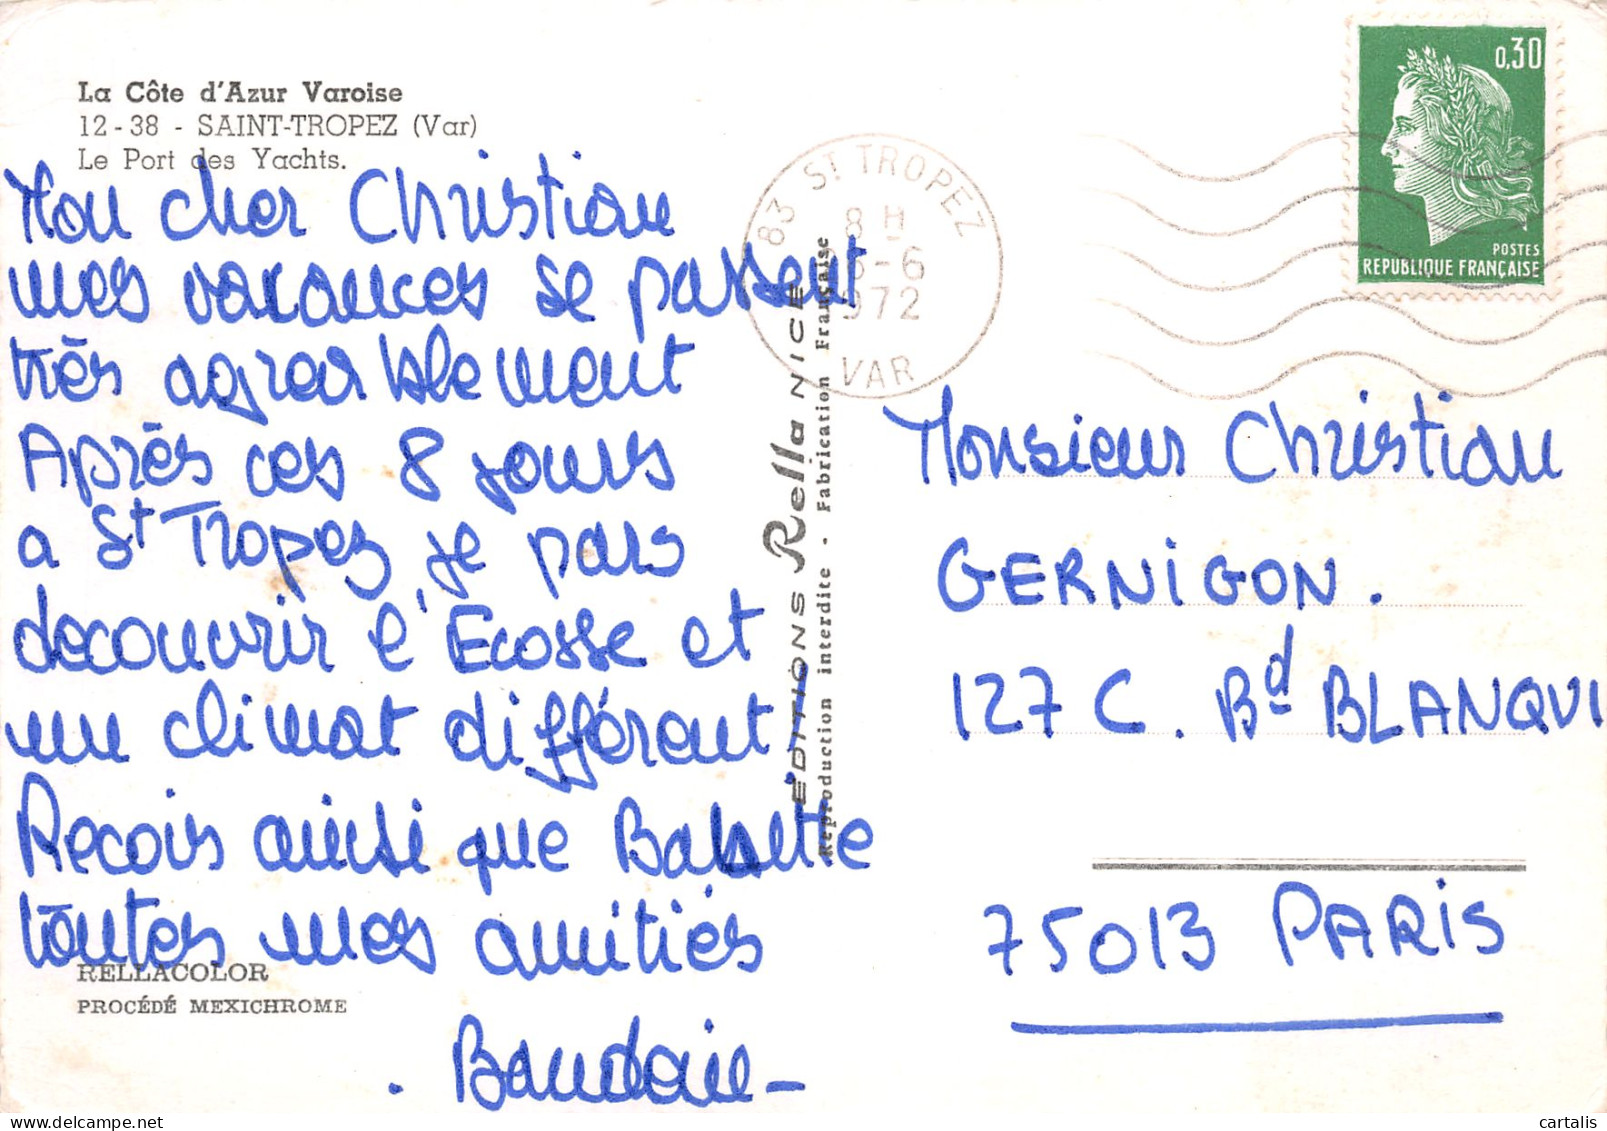 La Côte d'Azur Varoise
12-38 - SAINT-TROPEZ (Var)
Le Port des Yachts.
Mon cher Christian
mes vacances se passent
très agréablement
Après ces 8 jours
a St Tropez, je pars
decouvrir l'Ecosse et
un climat différent
Reçois ainsi que Babette
toutes mes amitiés
RELLACOLOR
PROCÉDÉ MEXICHROME
ÉDITIONS Rella NICE
Reproduction interdite - Fabrication Française
83 ST TROPEZ
8 H
-6
1972
VAR
0,30
POSTES
REPUBLIQUE FRANÇAISE
Monsieur Christian
GERNIGON.
127 C. Bd BLANQUI
75013 PARIS
cartalis